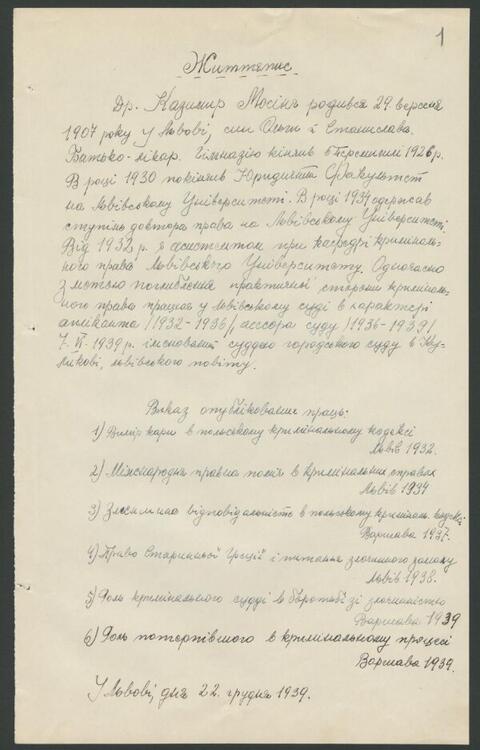 1
Життєпис
Др. Казимир Мосінг родився 29. вересня
1907 року у Львові, син Ольги і Станислава.
Батько-лікар. Гімназію кінчив в Перемишлі 1926 р.
В році 1930 покінчив Юридичний Факультет
на Львівському Університеті. В році 1934 одержав
ступінь доктора права на Львівському Університеті.
Від 1932 р. я асистентом при катедрі кріміналь-
ного права Львівського Університету. Одночасно
з метою поглиблення практичної сторони криміналь-
ного права працював у львівському суді в характері
аплїканта /1932-1936/, ассесора суду /1936-1939/
7. VI. 1939 р. іменований суддею городского суду в Ку-
ликові, львівського повіту.
Виказ опублікованих праць:
1) Вимір кари в польському крімінальному кодексі
Львів 1932.
2) Міжнародна правна поміч в крімінальних справах
Львів 1934
3) відповідальність в польському криміналь. кодексі
Варшава 1937.
4) Право Старинної Греції і питання злочинного замаху
Львів 1938.
5) Роль кримінального судді в боротьбі зі злочинністю
Варшава 1939
6) Роль потерпівшого в крімінальному процесі
Варшава 1939.
У Львові, дня 22. грудня 1939.